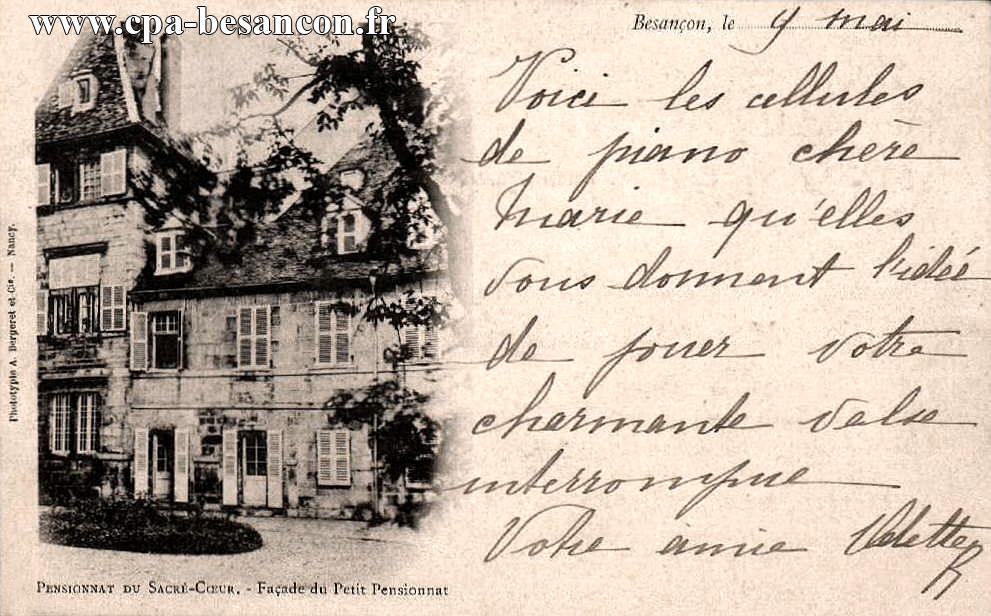 www.cpa-besancon.fr
Besançon, le 9 mai
Voici les cellules
de piano chère
Marie qu'elles
vous donnent l'idée
de jouer votre
charmante valse
interrompue
Votre amie
Phototypie A. Bergeret et Cie. — Nancy.
PENSIONNAT DU SACRÉ-CŒUR. - Façade du Petit Pensionnat